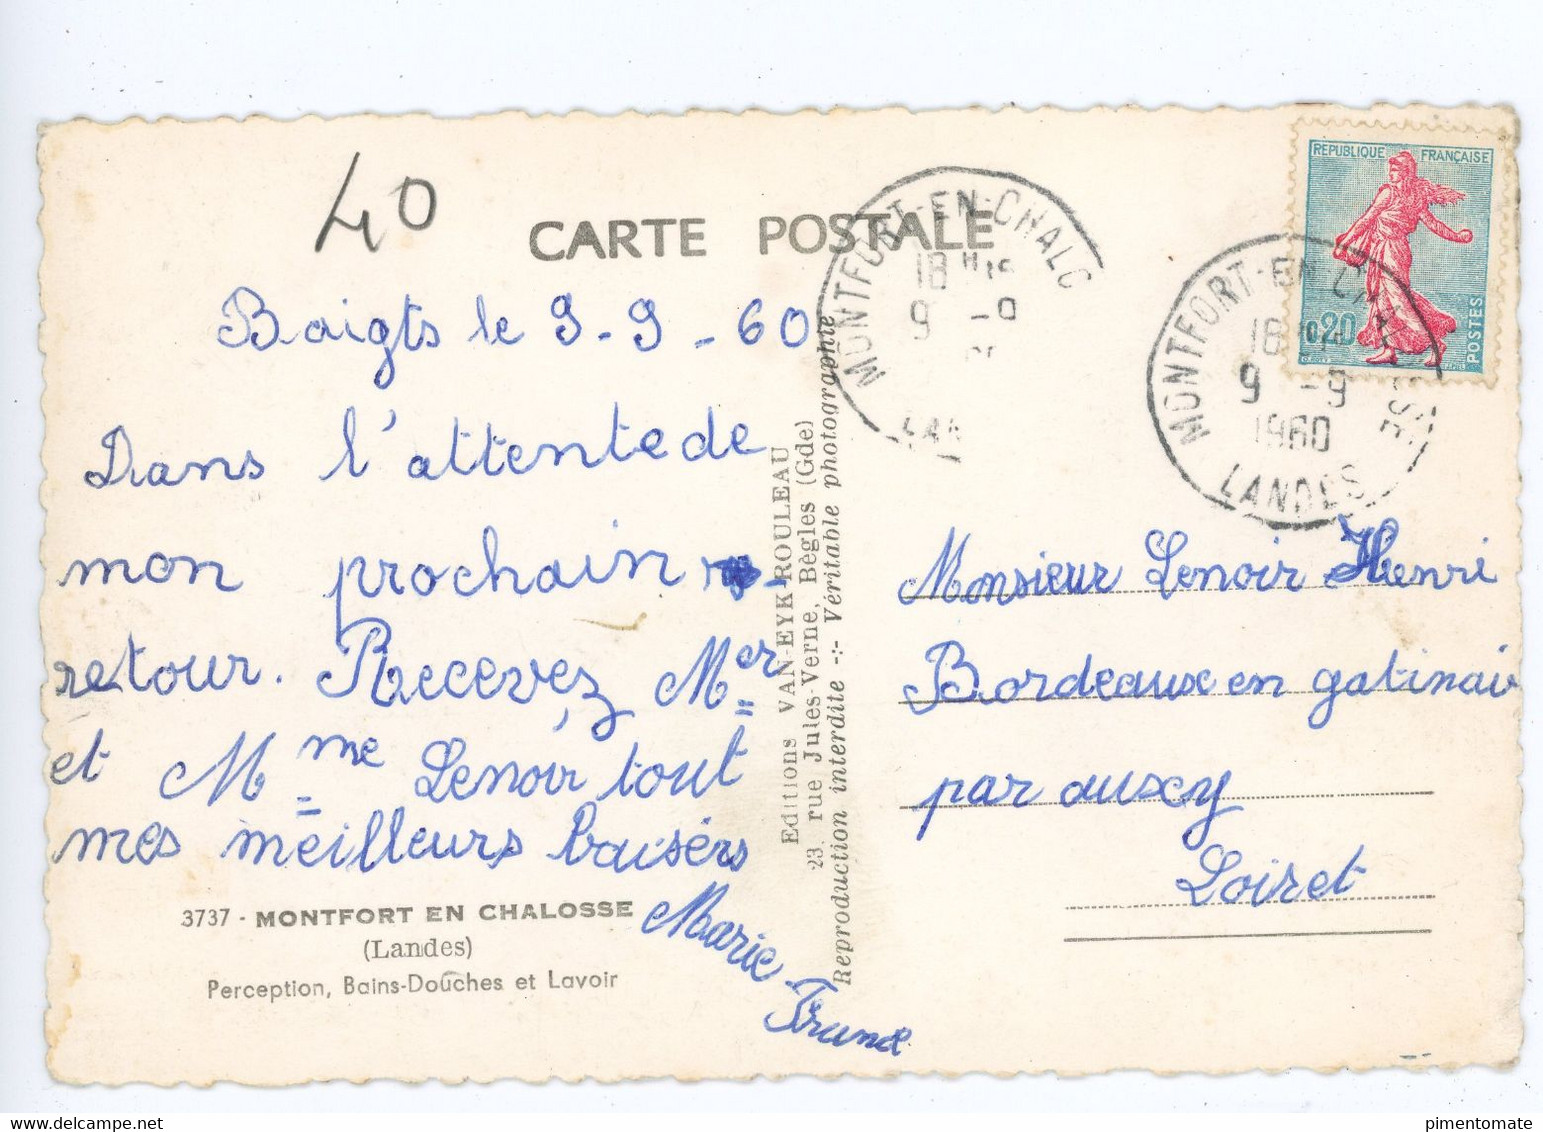 40
CARTE POSTALE
Baigts le 9-9-60
Dans l'attente de
mon prochain
retour. Recevez Mer
et Mme Lenoir tout
mes meilleurs baisers
Marie France
3737 - MONTFORT EN CHALOSSE
(Landes)
Perception, Bains-Douches et Lavoir
Editions VAN-EYK-ROULEAU
23, rue Jules-Verne, Bègles (Gde)
Reproduction interdite -:- Véritable photographie
MONTFORT-EN-CHALO
18 H
9 -9
LAN
REPUBLIQUE FRANÇAISE
0,20
POSTES
MONTFORT-EN-CHALOSSE
18 H
9 -9
1960
LANDES
Monsieur Lenoir Henri
Bordeaux en gatinais
par auxcy
Loiret
pimentomate